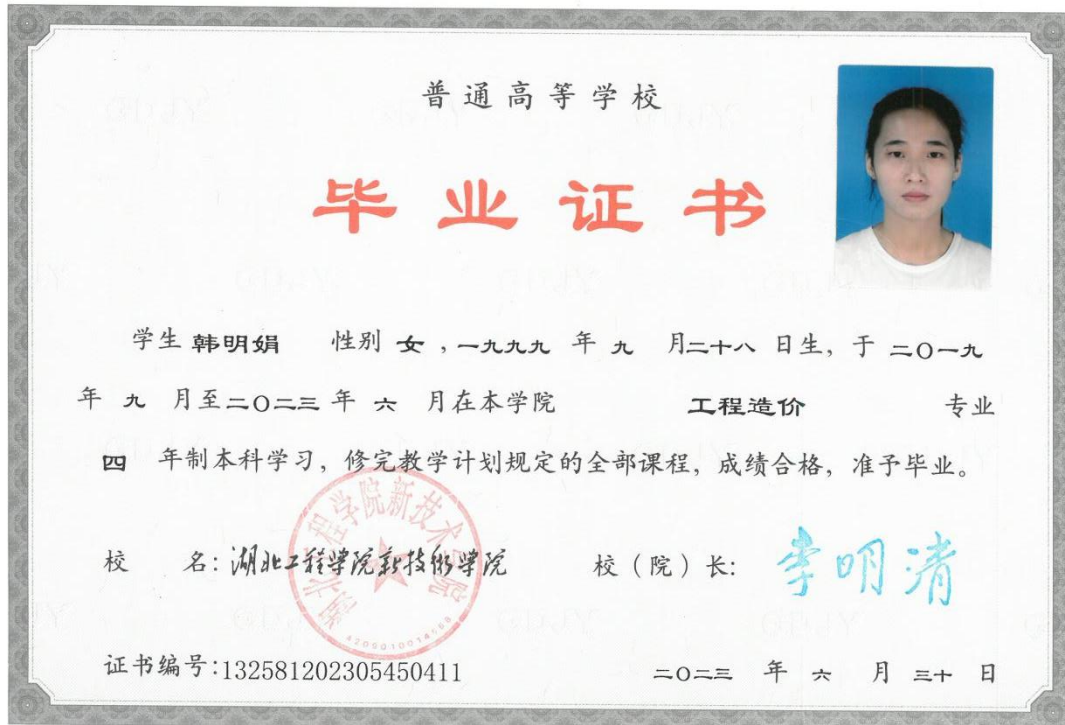 普通高等学校
毕业证书
学生 韩明娟 性别 女 , 一九九九 年 九 月 二十八 日生, 于 二〇一九
年 九 月至 二〇二三 年 六 月在本学院 工程造价 专业
四 年制本科学习, 修完教学计划规定的全部课程, 成绩合格, 准予毕业。
校 名: 湖北工程学院新技术学院 校(院)长: 李明清
湖北工程学院新技术学院
证书编号:132581202305450411 二〇二三 年 六 月 三十 日